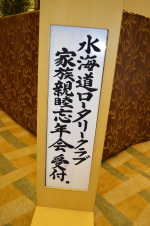 水海道ロータリークラブ
家族親睦忘年会 受付.